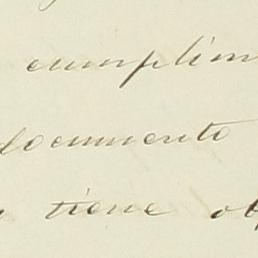 cumplim
documento
tiene ob